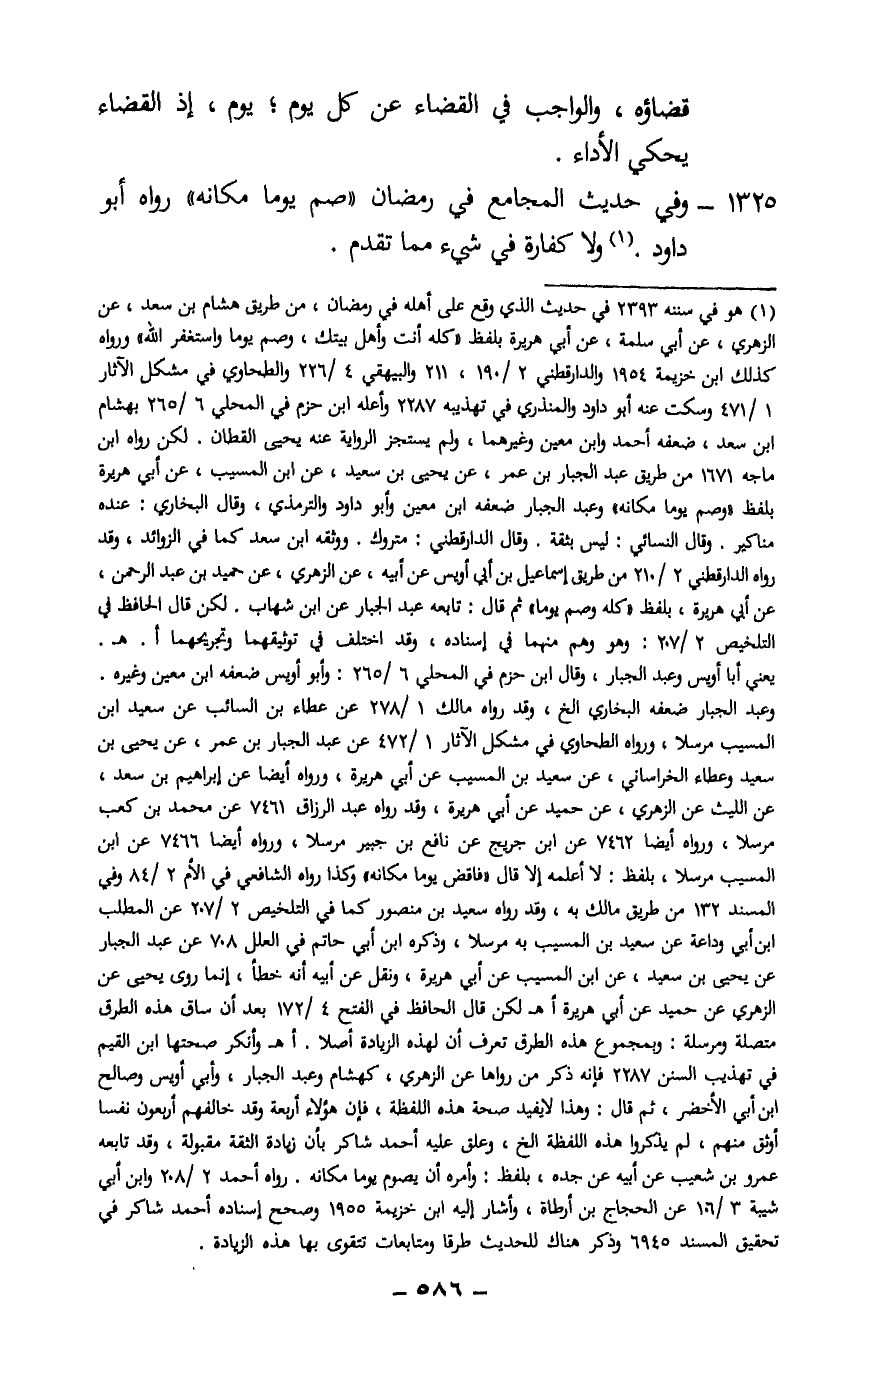 قضاؤه ، والواجب في القضاء عن كل يوم ؛ يوم ، إذ القضاء
يحكي الأداء .
١٣٢٥ – وفي حديث المجامع في رمضان «صم يوما مكانه» رواه أبو
داود .(١) ولا كفارة في شيء مما تقدم .
(١) هو في سننه ٢٣٩٣ في حديث الذي وقع على أهله في رمضان ، من طريق هشام بن سعد ، عن
الزهري ، عن أبي سلمة ، عن أبي هريرة بلفظ «كله أنت وأهل بيتك ، وصم يوما واستغفر الله» ورواه
كذلك ابن خزيمة ١٩٥٤ والدارقطني ٢ /١٩٠ ، ٢١١ والبيهقي ٤ /٢٢٦ والطحاوي في مشكل الآثار
١ /٤٧١ وسكت عنه أبو داود والمنذري في تهذيبه ٢٢٨٧ وأعله ابن حزم في المحلي ٦ /٢٦٥ بهشام
ابن سعد ، ضعفه أحمد وابن معين وغيرهما ، ولم يستجز الرواية عنه يحيى القطان . لكن رواه ابن
ماجه ١٦٧١ من طريق عبد الجبار بن عمر ، عن يحيى بن سعيد ، عن ابن المسيب ، عن أبي هريرة
بلفظ «وصم يوما مكانه» وعبد الجبار ضعفه ابن معين وأبو داود والترمذي ، وقال البخاري : عنده
مناكير . وقال النسائي : ليس بثقة . وقال الدارقطني : متروك . ووثقه ابن سعد كما في الزوائد ، وقد
رواه الدارقطني ٢ /٢١٠ من طريق إسماعيل بن أبي أويس عن أبيه ، عن الزهري ، عن حميد بن عبد الرحمن ،
عن أبي هريرة ، بلفظ «كله وصم يوما» ثم قال : تابعه عبد الجبار عن ابن شهاب . لكن قال الحافظ في
التلخيص ٢ /٢٠٧ : وهو وهم منهما في إسناده ، وقد اختلف في توثيقهما وتجريحهما أ . هـ .
يعني أبا أويس وعبد الجبار ، وقال ابن حزم في المحلي ٦ /٢٦٥ : وأبو أويس ضعفه ابن معين وغيره .
وعبد الجبار ضعفه البخاري الخ ، وقد رواه مالك ١ /٢٧٨ عن عطاء بن السائب عن سعيد ابن
المسيب مرسلا ، ورواه الطحاوي في مشكل الآثار ١ /٤٧٢ عن عبد الجبار بن عمر ، عن يحيى بن
سعيد وعطاء الخراساني ، عن سعيد بن المسيب عن أبي هريرة ، ورواه أيضا عن إبراهيم بن سعد ،
عن الليث عن الزهري ، عن حميد عن أبي هريرة ، وقد رواه عبد الرزاق ٧٤٦١ عن محمد بن كعب
مرسلا ، ورواه أيضا ٧٤٦٢ عن ابن جريج عن نافع بن جبير مرسلا ، ورواه أيضا ٧٤٦٦ عن ابن
المسيب مرسلا ، بلفظ : لا أعلمه إلا قال «فاقض يوما مكانه» وكذا رواه الشافعي في الأم ٢ /٨٤ وفي
المسند ١٣٢ من طريق مالك به ، وقد رواه سعيد بن منصور كما في التلخيص ٢ /٢٠٧ عن المطلب
ابن أبي وداعة عن سعيد بن المسيب به مرسلا ، وذكره ابن أبي حاتم في العلل ٧٠٨ عن عبد الجبار
عن يحيى بن سعيد ، عن ابن المسيب عن أبي هريرة ، ونقل عن أبيه أنه خطأ ، إنما روى يحيى عن
الزهري عن حميد عن أبي هريرة أ هـ لكن قال الحافظ في الفتح ٤ /١٧٢ بعد أن ساق هذه الطرق
متصلة ومرسلة : وبمجموع هذه الطرق تعرف أن لهذه الزيادة أصلا . أ هـ وأنكر صحتها ابن القيم
في تهذيب السنن ٢٢٨٧ فإنه ذكر من رواها عن الزهري ، كهشام وعبد الجبار ، وأبي أويس وصالح
ابن أبي الأخضر ، ثم قال : وهذا لايفيد صحة هذه اللفظة ، فإن هؤلاء أربعة وقد خالفهم أربعون نفسا
أوثق منهم ، لم يذكروا هذه اللفظة الخ ، وعلق عليه أحمد شاكر بأن زيادة الثقة مقبولة ، وقد تابعه
عمرو بن شعيب عن أبيه عن جده ، بلفظ : وأمره أن يصوم يوما مكانه . رواه أحمد ٢ /٢٠٨ وابن أبي
شيبة ٣ /١٦ عن الحجاج بن أرطاة ، وأشار إليه ابن خزيمة ١٩٥٥ وصحح إسناده أحمد شاكر في
تحقيق المسند ٦٩٤٥ وذكر هناك للحديث طرقا ومتابعات تتقوى بها هذه الزيادة .
– ٥٨٦ –